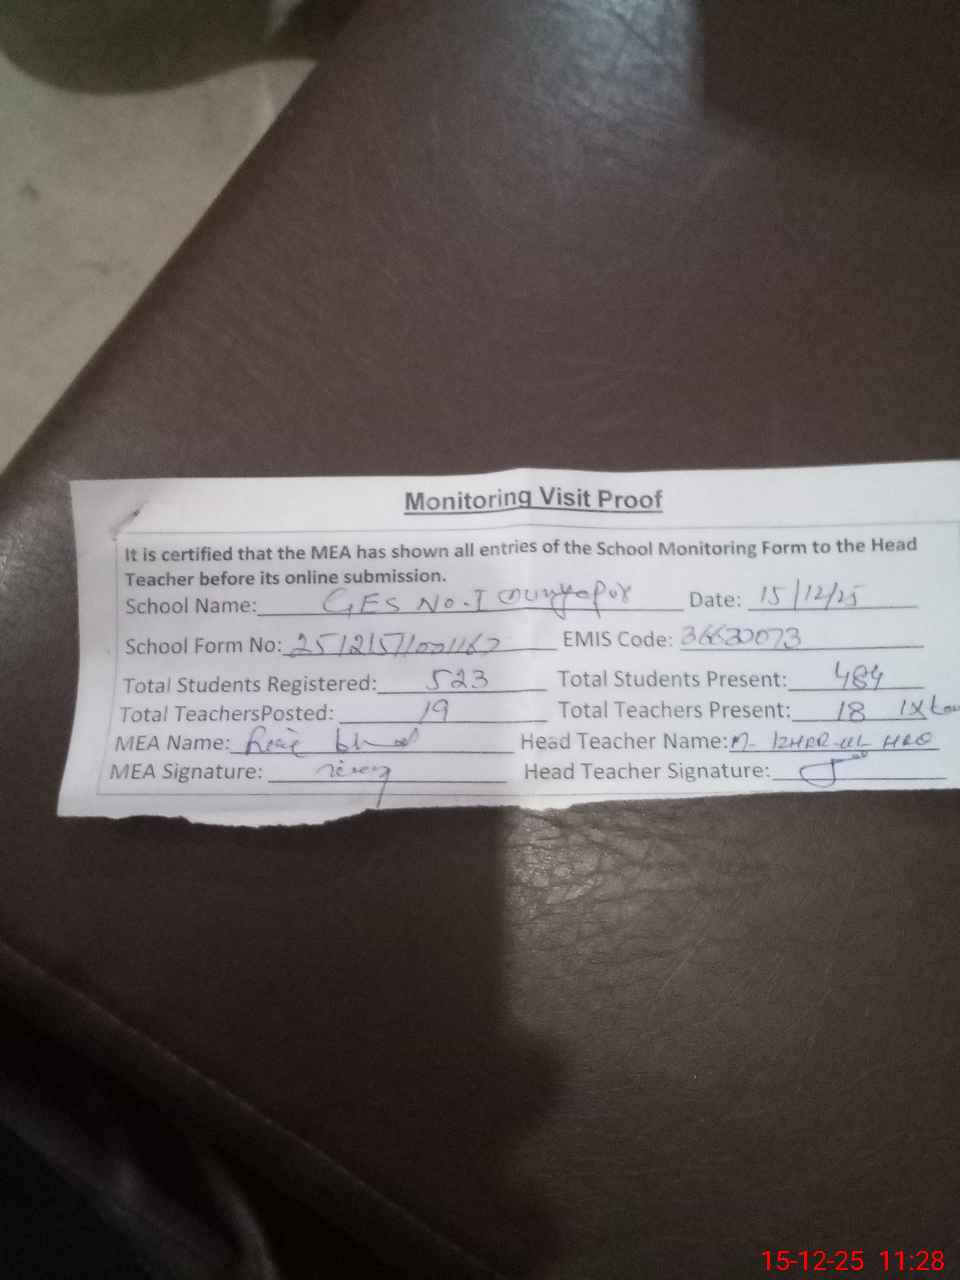 Monitoring Visit Proof
It is certified that the MEA has shown all entries of the School Monitoring Form to the Head
Teacher before its online submission.
School Name: GES No.I Date: 15/12/25
School Form No: EMIS Code: 36630073
Total Students Registered: 523 Total Students Present: 484
Total TeachersPosted: 19 Total Teachers Present: 18 1x
MEA Name: Head Teacher Name: M.
MEA Signature: Head Teacher Signature:
15-12-25 11:28